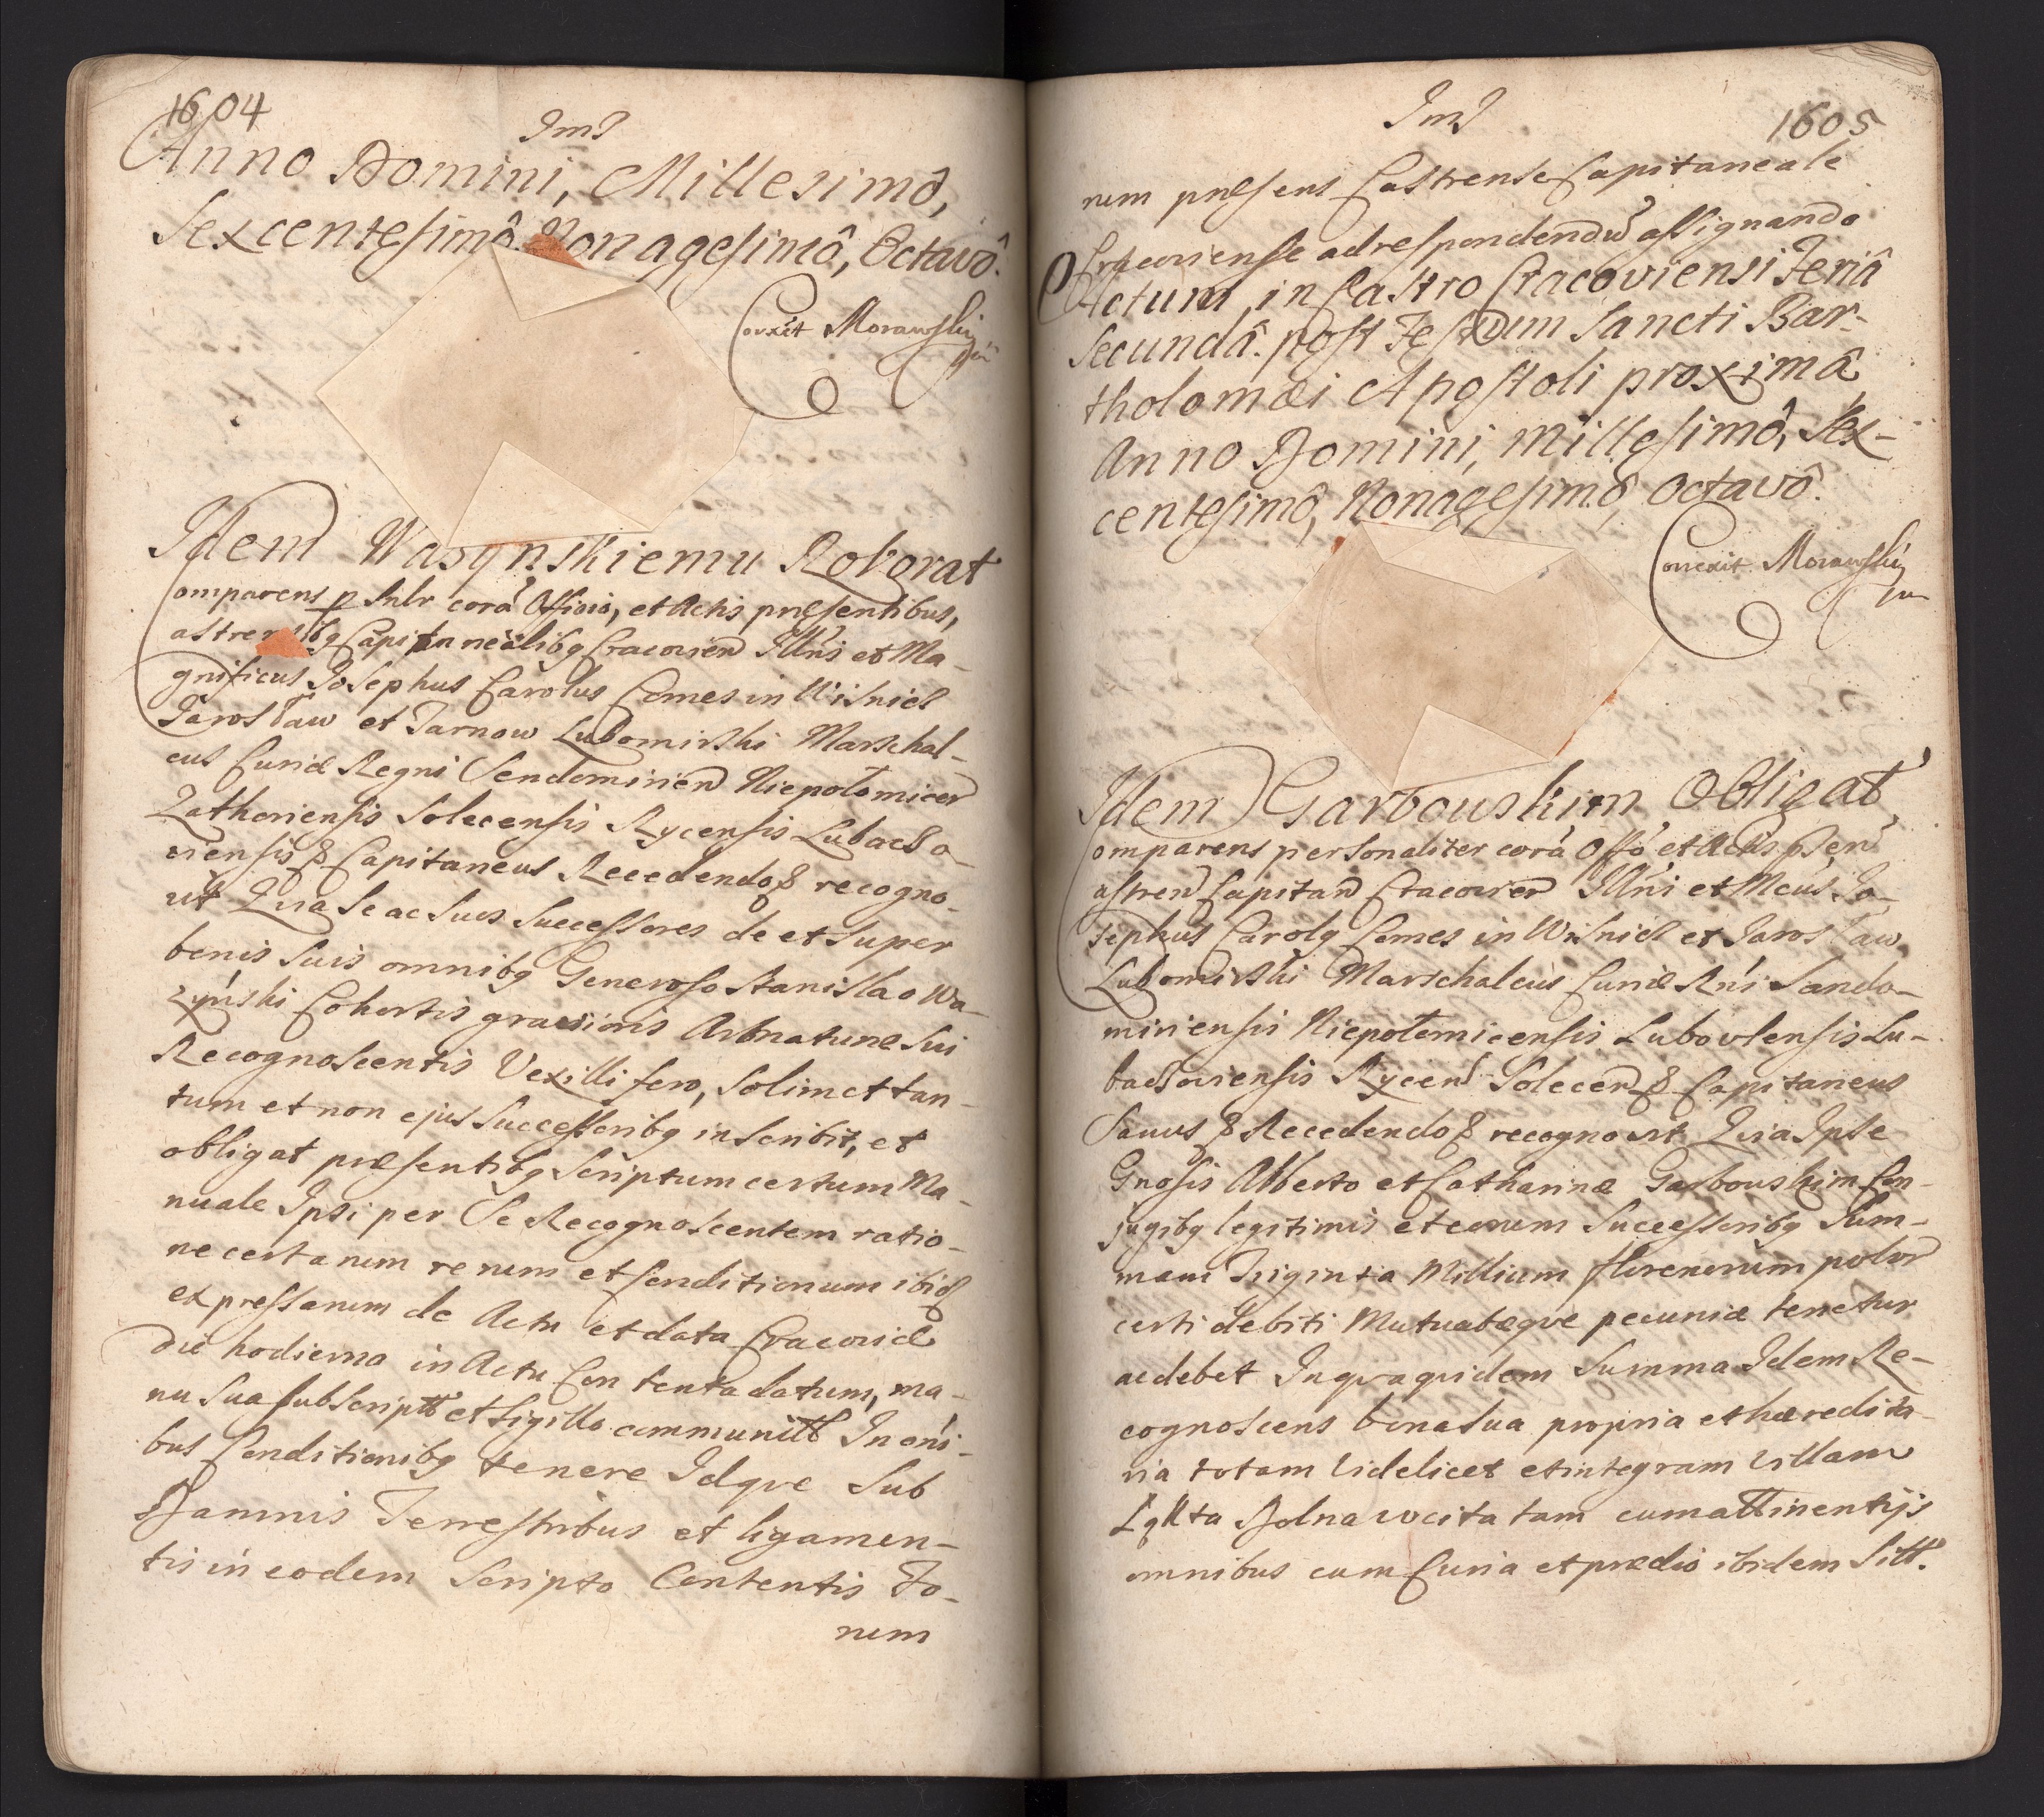 1604
Anno Domini, Millesimô,
Sexcentesimô Nonagesimô, Octavô.
Correxit Morawski
Idem Wasynskiemu Roborat
Comparens p corã Officio, et Actis præsentibus,
Capitanealibq Cracovien Illris et Ma-
gnificus Josephus Carolus Comes in Wisnicz
Jarosław et Tarnow Lubomirski Marschal-
cus Curiæ Regni Sendomirien Niepołomicen
Zathoriensis Solecensis Rycensis Lubaczo-
viensis & Capitaneus Recedendo & recogno-
vit Quia Se ac Suos Successores de et Super
bonis Suis omnibq Generoso Stanislao Wa-
zyński Cohortis gravioris Armaturæ Sui
Recognoscentis Vexillifero, Solimet tan-
tum et non ejus Successoribq inscribit, et
obligat præsentibq Scriptum certum Ma-
nuale Ipsi per Se Recognoscentem ratio-
ne certarum rerum et Conditionum ibid
expressarum de Actu et data Cracoviæ
die hodierna in Actu Contenta datum, ma-
nu Sua Subscriptũ et Sigillo communitũ In oni-
bus Conditionibq tenere Idqve Sub
Damnis Terrestribus et ligamen-
tis in eodem Scripto Contentis Fo-
rum
1605
rum præsens Castrense Capitaneale
Cracoviense ad respondendũ assignando
Actum in Castro Cracoviensi Feriâ
Secundâ post Festum Sancti Bar-
tholomæi Apostoli proximâ
Anno Domini, Millesimô, Sex-
centesimô, Nonagesimô, Octavô.
Correxit Morawski
Idem Garbowskim Obligat
Comparens personaliter corã Offo et Actis
Castren Capitan Cracovien Illris et Mcus Jo-
sephus Carolq Comes in Wisnicz et Jarosław
Lubomirski Marschalcus Curiæ Rni Sando-
miriensis Niepołomicensis Lubovlensis Lu-
baczoviensis Rycen Solecen & Capitaneus
Sanus & Recedendo & recognovit Quia Ipse
Gnosis Alberto et Catharinæ Garbowskim Con-
jugibq legitimis et eorum Successoribq Sum-
mam Triginta Millium florenorum polon
certi debiti Mutuatæqve pecuniæ tenetur
ac debet In qva qvidem Summa Idem Re-
cognoscens bona Sua propria et hæredita-
ria totam videlicet et integram Villam
Łąkta Dolna vocitatam cum attinentijs
omnibus cum Curia et prædio ibidem Sitt.